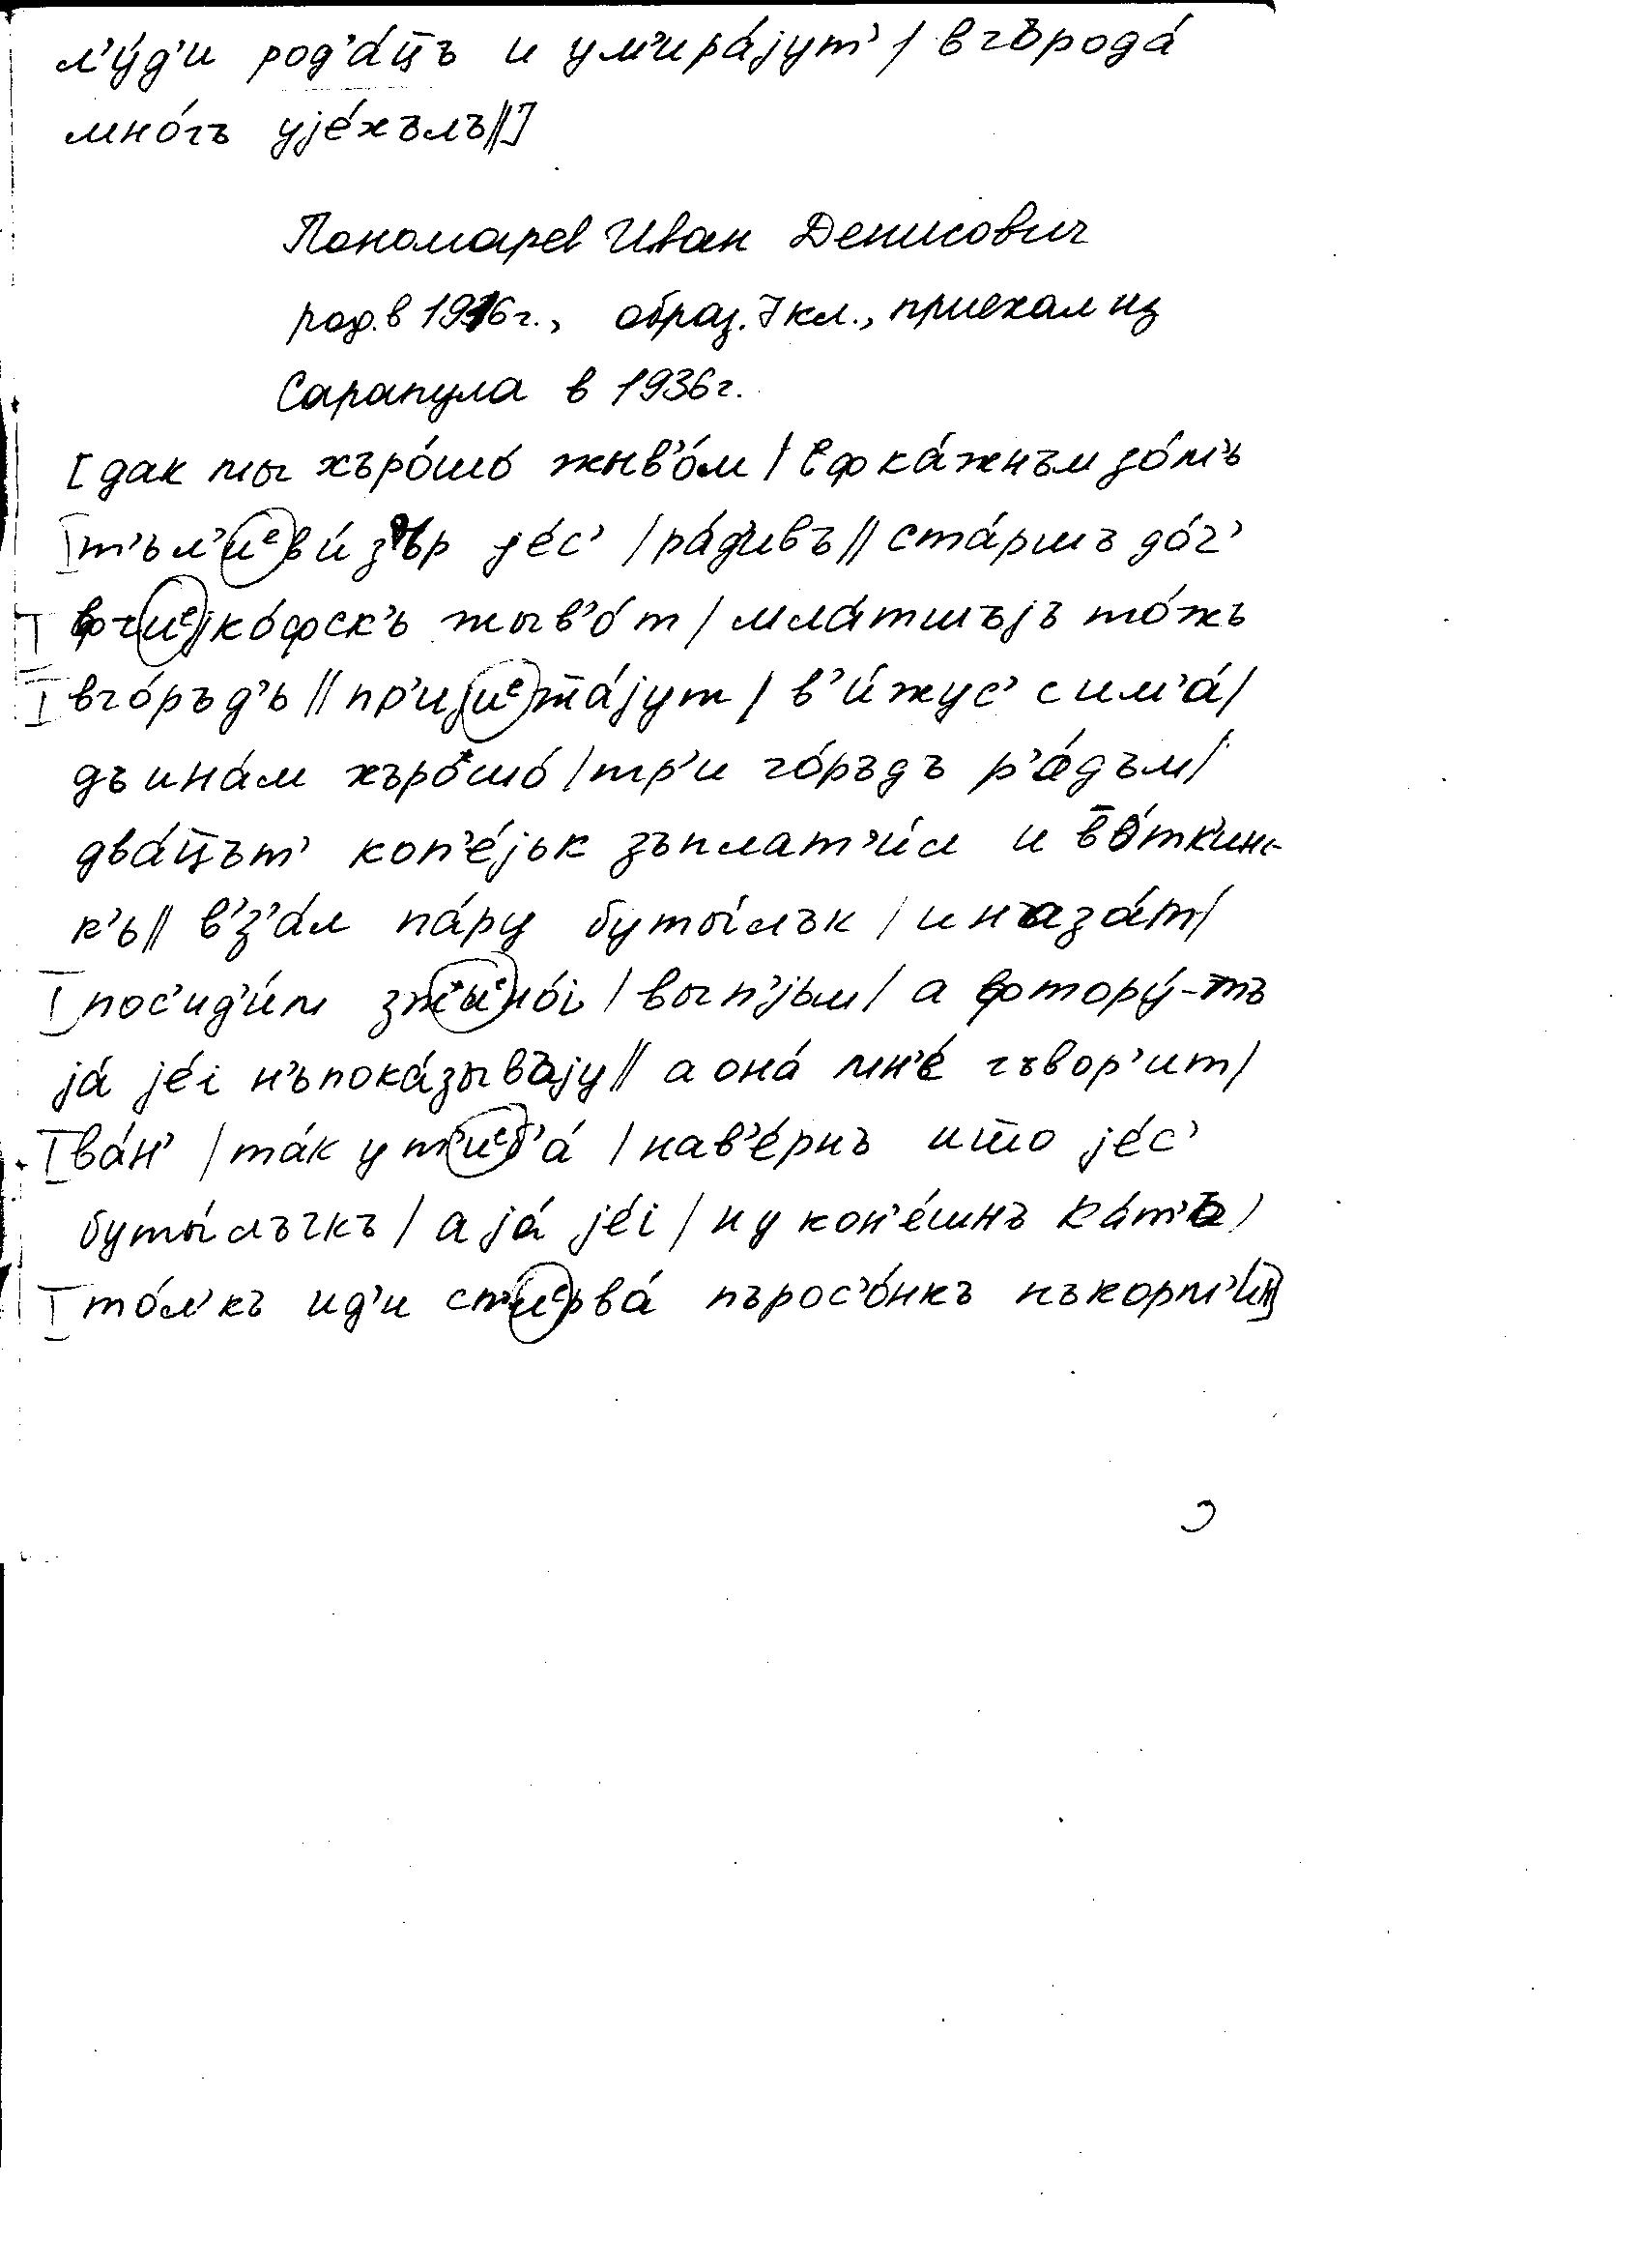 л'у́д'и род'а́ц̄ъ и ум'ира́jут' / в гърода́
мно́гъ уjе́хълъ//]
Пономарев Иван Денисович
род. в 1916 г., образ. 7 кл., приехал из
Сарапула в 1936 г.
[дак мы хъро́шо́ жыв'о́м / ф ка́жнъм до́м'ъ
т'ъл'иᵉви́зър jе́с' / ра́д'ивъ // ста́ршъ до́ч'
в чиᵉjко́фск'ъ жыв'о́т / мла́тшъjъ то́жъ
в го́ръд'ъ // пр'иjиᵉжа́jут / в'и́жус' с им'а́ /
дъ и на́м хъро́шо́ / тр'и го́ръдъ р'а́дъм /
два́ц̄ът' коп'е́jьк зъплат'и́л и в̄о́ткинс-
к'ъ // в'з'а́л па́ру буты́лък / и наза́т /
пос'ид'и́м з жиᵉно́i / вып'jьм / а фтору́-тъ
jа́ jе́i н'ъпока́зывъjу // а она́ мн'е́ гъвор'ит /
ва́н' / та́к у т'иᵉб'а́ / нав'е́рнъ ишо jе́с'
буты́лъчкъ / а jа́ jе́i / ну кон'е́шнъ ка́т'ъ /
то́л'къ ид'и с п'иᵉрва́ пърос'о́нкъ нъкорм'и́//]